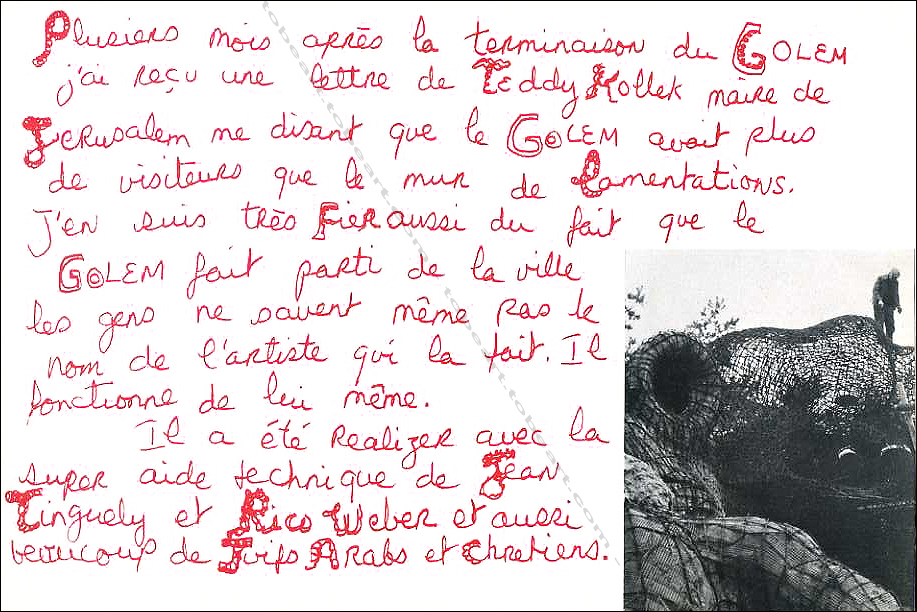 Plusiers mois après la terminaison du GOLEM
j'ai reçu une lettre de Teddy Kollek maire de
Jerusalem me disant que le GOLEM avait plus
de visiteurs que le mur de Lamentations.
J'en suis très Fier aussi du fait que le
GOLEM fait parti de la ville
les gens ne savent même pas le
nom de l'artiste qui la fait. Il
fonctionne de lui même.
Il a été Realizer avec la
super aide technique de Jean
Tinguely et Rico Weber et aussi
beaucoup de Juifs Arabs et Chretiens.